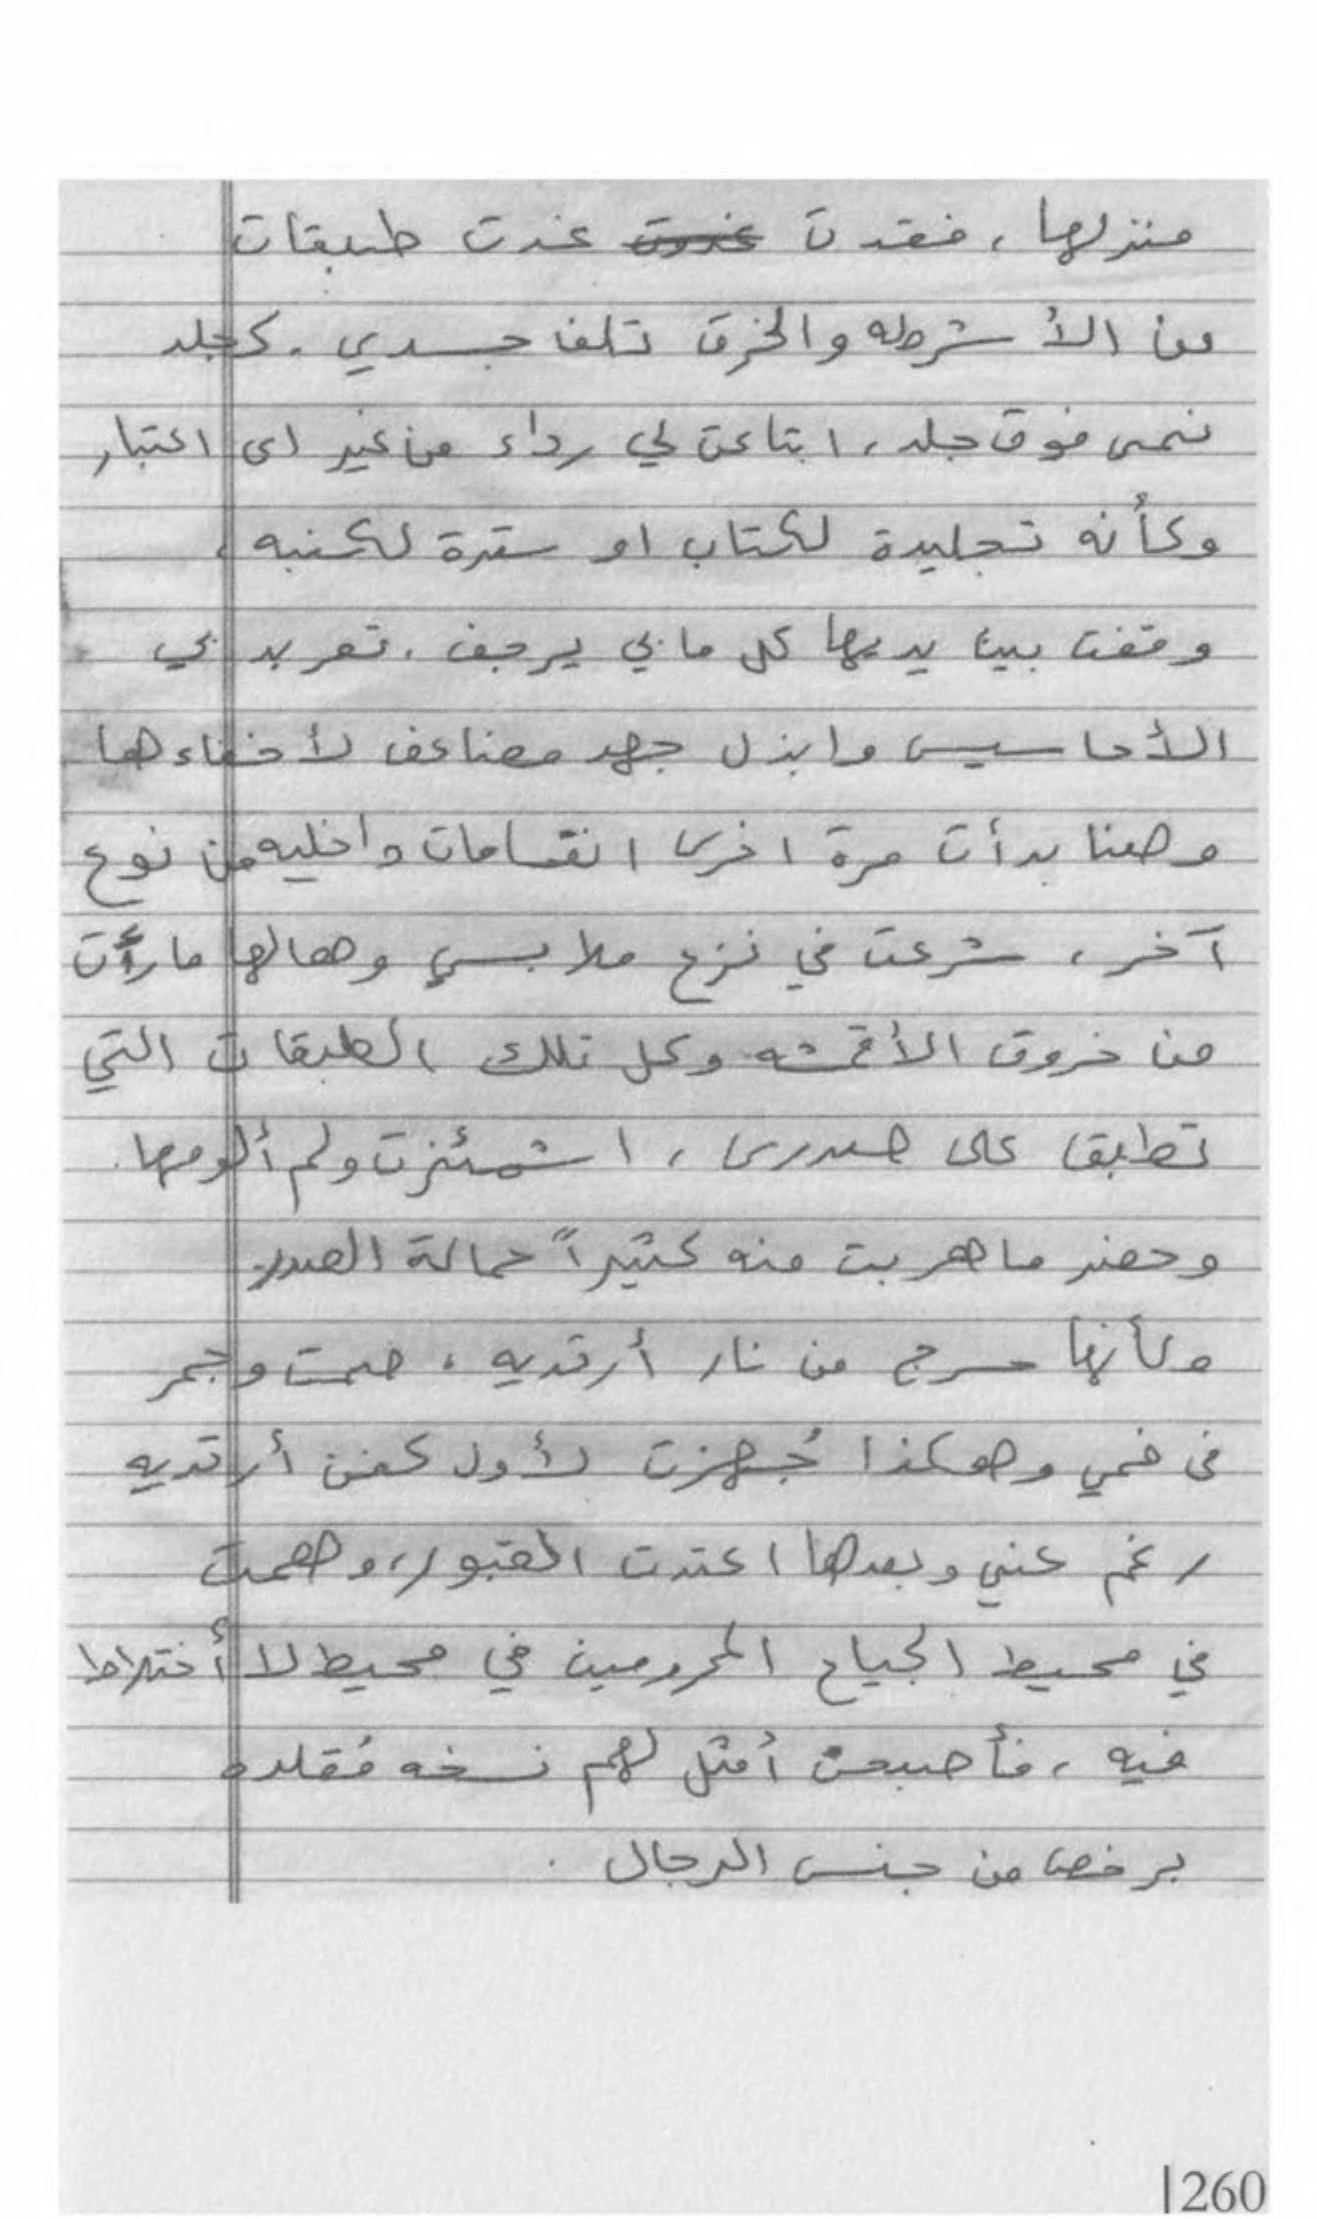 منزلها، فقدت غدوت غدت طبقات
من الأشرطه والخرق تلف جسدي. كجلد
نمى فوق جلد، ابتاعت لي رداء من غير اى اعتبار
وكأنه تجليدة لكتاب او سترة لكنبه،
وقفت بين يديها كل مابي يرجف، تعربد بي
الأحاسيس وابذل جهد مضاعف لأخفاءها
وهنا بدأت مرة اخرى انقسامات داخليه من نوع
آخر، شرعت في نزع ملابسي وهالها ما رأت
من خروق الأقمشه وكل تلك الطبقات التي
تطبق على صدرى، اشمئزت ولم ألومها.
وحضر ما هربت منه كثيراً حمالة الصدر.
وكأنها سرج من نار أرتديه، صمت وجمر
فى فمي وهكذا جُهزت لأول كفن أرتديه
رغم عني وبعدها اعتدت القبور، وهمت
في محيط الجياع المحرومين في محيط لا أختلاط
فيه، فأصبحت أمثل لهم نسخه مُقلده
برخص من جنس الرجال.
260